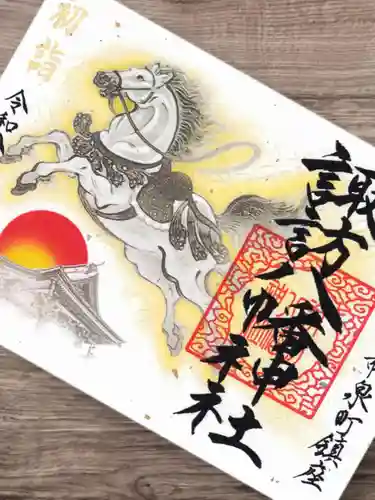 初詣
諏訪八幡神社
泉町鎮座
令和